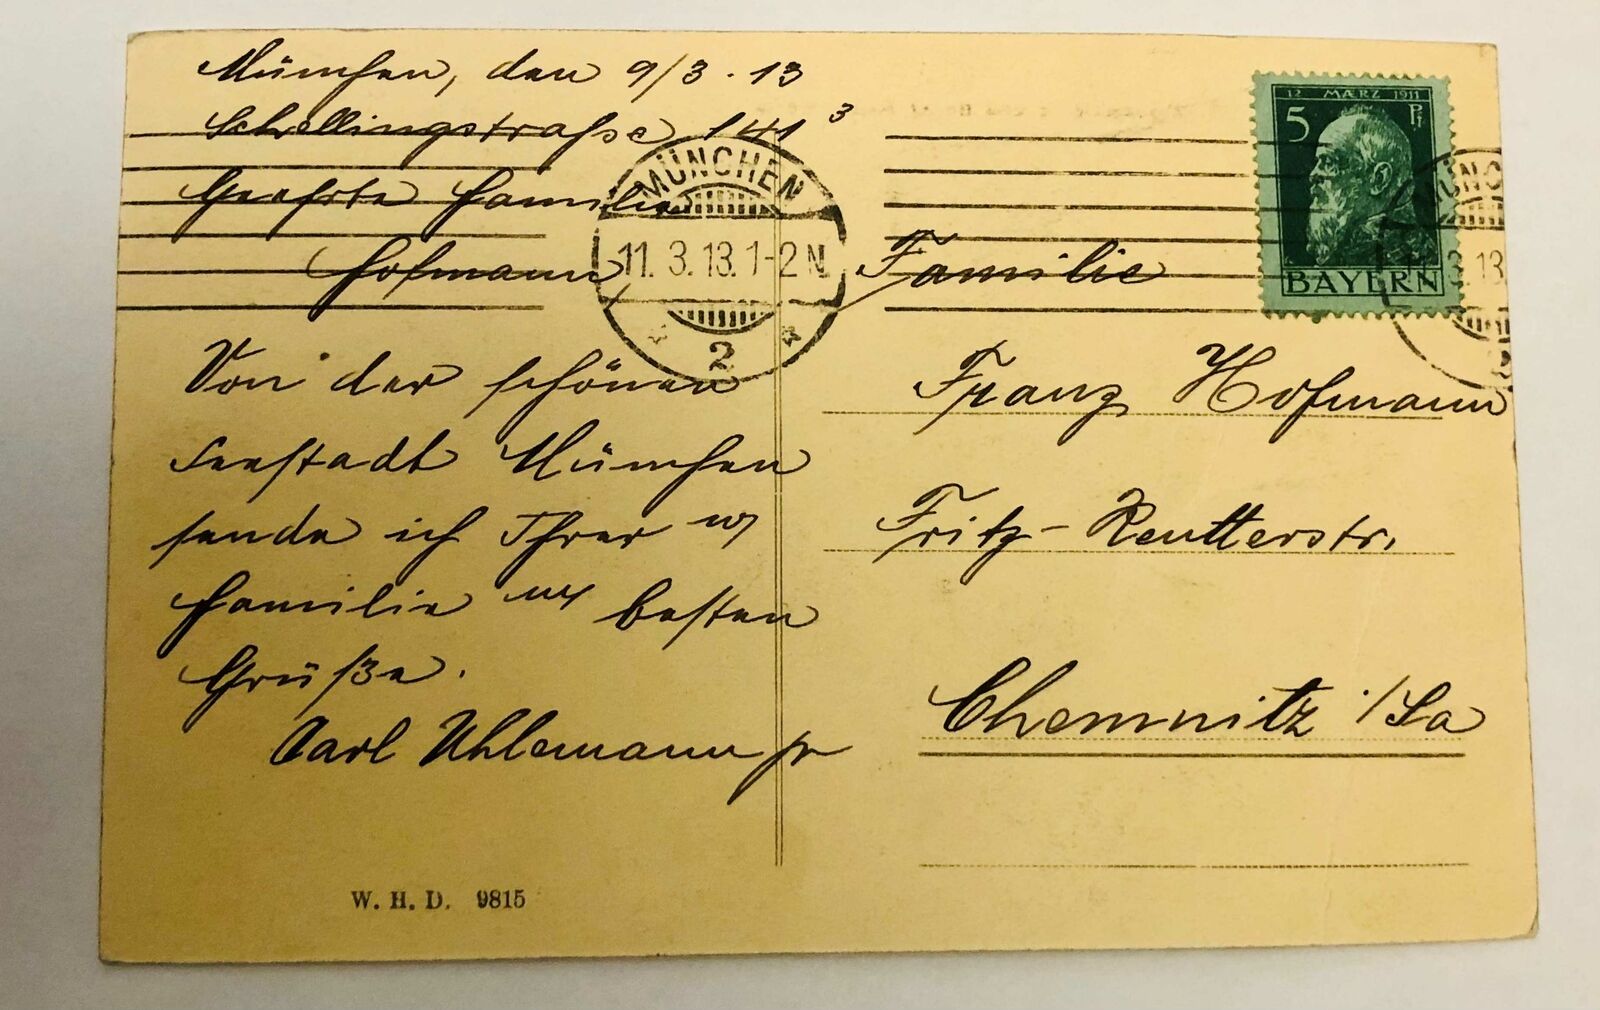 München, den 9/3. 13
Schellingstraße 141 3
Geehrte Familie
Hofmann
Von der schönen
Feststadt München
sende ich Ihrer w
Familie die besten
Grüße.
Carl Uhlemann jr
W. H. D. 9815
MÜNCHEN
11. 3. 13. 1-2 N.
2
12 MÆRZ 1911
5 Pf
BAYERN
Familie
Franz Hofmann
Fritz-Reutterstr.
Chemnitz i/Sa